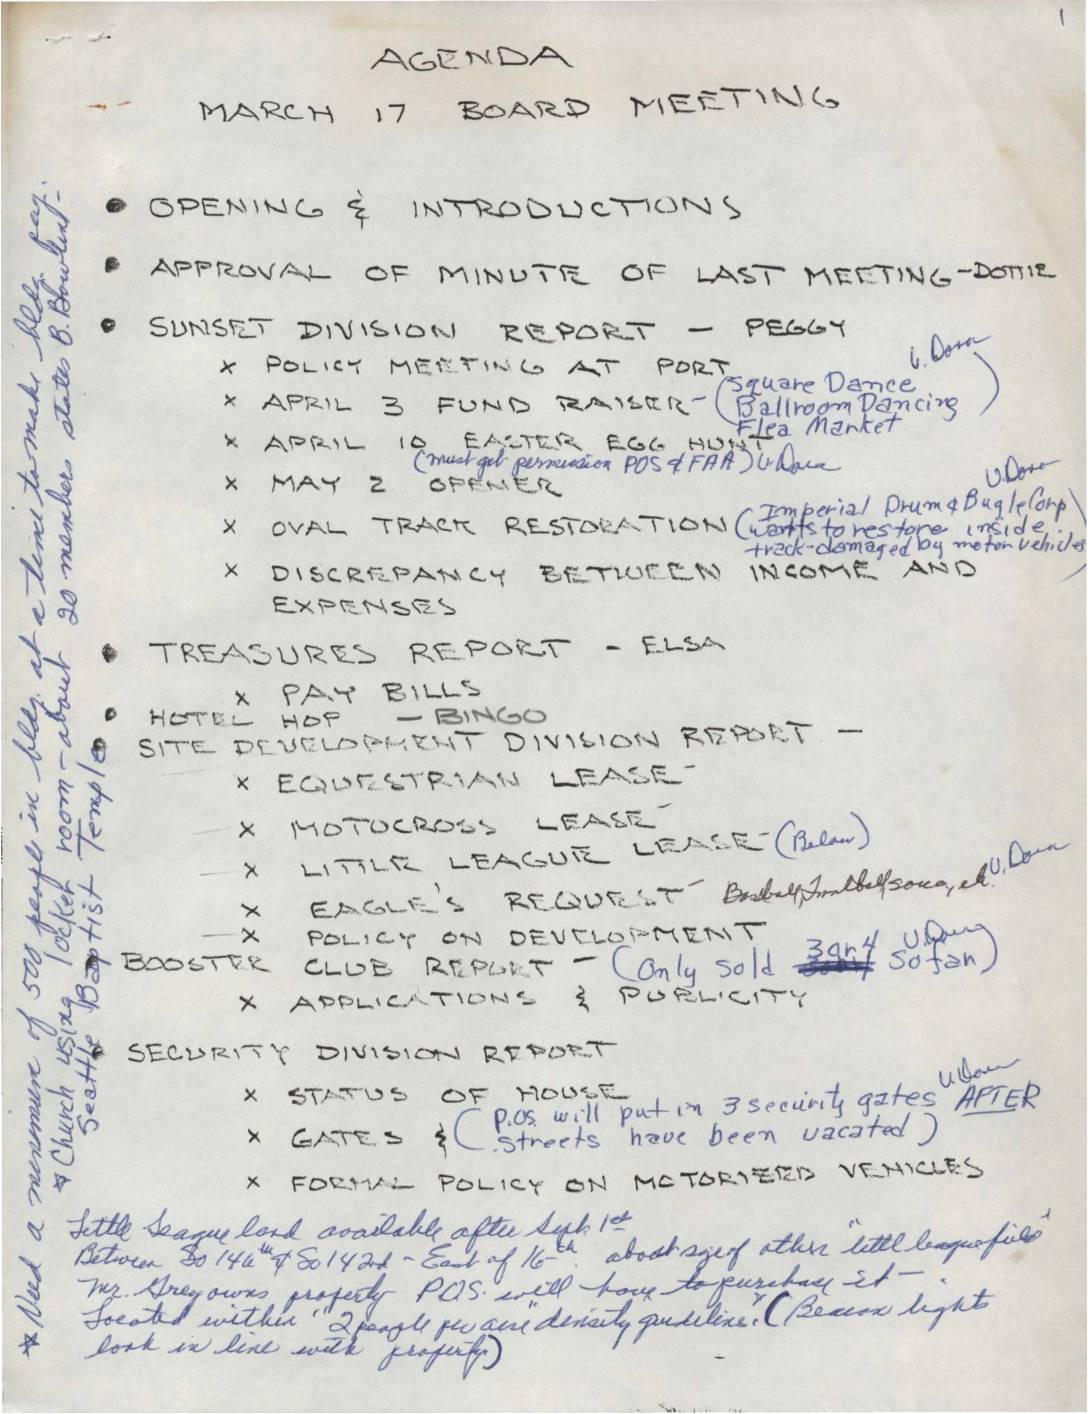 1
AGENDA
MARCH 17 BOARD MEETING
• OPENING & INTRODUCTIONS
• APPROVAL OF MINUTE OF LAST MEETING - DOTTIE
• SUNSET DIVISION REPORT - PEGGY
x POLICY MEETING AT PORT
x APRIL 3 FUND RAISER - (Square Dance
Ballroom Dancing
Flea Market)
x APRIL 10 EASTER EGG HUNT
(must get permission POS & FAA)
x MAY 2 OPENER
x OVAL TRACK RESTORATION (Imperial Drum & Bugle Corp
wants to restore inside
track-damaged by motor vehicles)
x DISCREPANCY BETWEEN INCOME AND
EXPENSES
• TREASURES REPORT - ELSA
x PAY BILLS
• HOTEL HOP - BINGO
• SITE DEVELOPMENT DIVISION REPORT -
x EQUESTRIAN LEASE -
x MOTOCROSS LEASE -
x LITTLE LEAGUE LEASE - (Below)
x EAGLE'S REQUEST - Baseball, Football, etc.
x POLICY ON DEVELOPMENT
BOOSTER CLUB REPORT - (Only sold 3 or 4 so far)
x APPLICATIONS & PUBLICITY
• SECURITY DIVISION REPORT
x STATUS OF HOUSE
x GATES & (P.O.S. will put in 3 security gates AFTER
streets have been vacated)
x FORMAL POLICY ON MOTORIZED VEHICLES
Little League land available after Sept. 1st
Between So 146th & So 142nd - East of 16th about size of other "little league field"
Mr. Grey owns property P.O.S. will have to purchase it -
Located within "2 people per acre" density guideline. (Beacon lights
look in line with property)
* Need a minimum of 500 people in bldg. at a time to make bldg. pay.
* Church using locker room - about 20 members states B. -
Seattle Baptist Temple